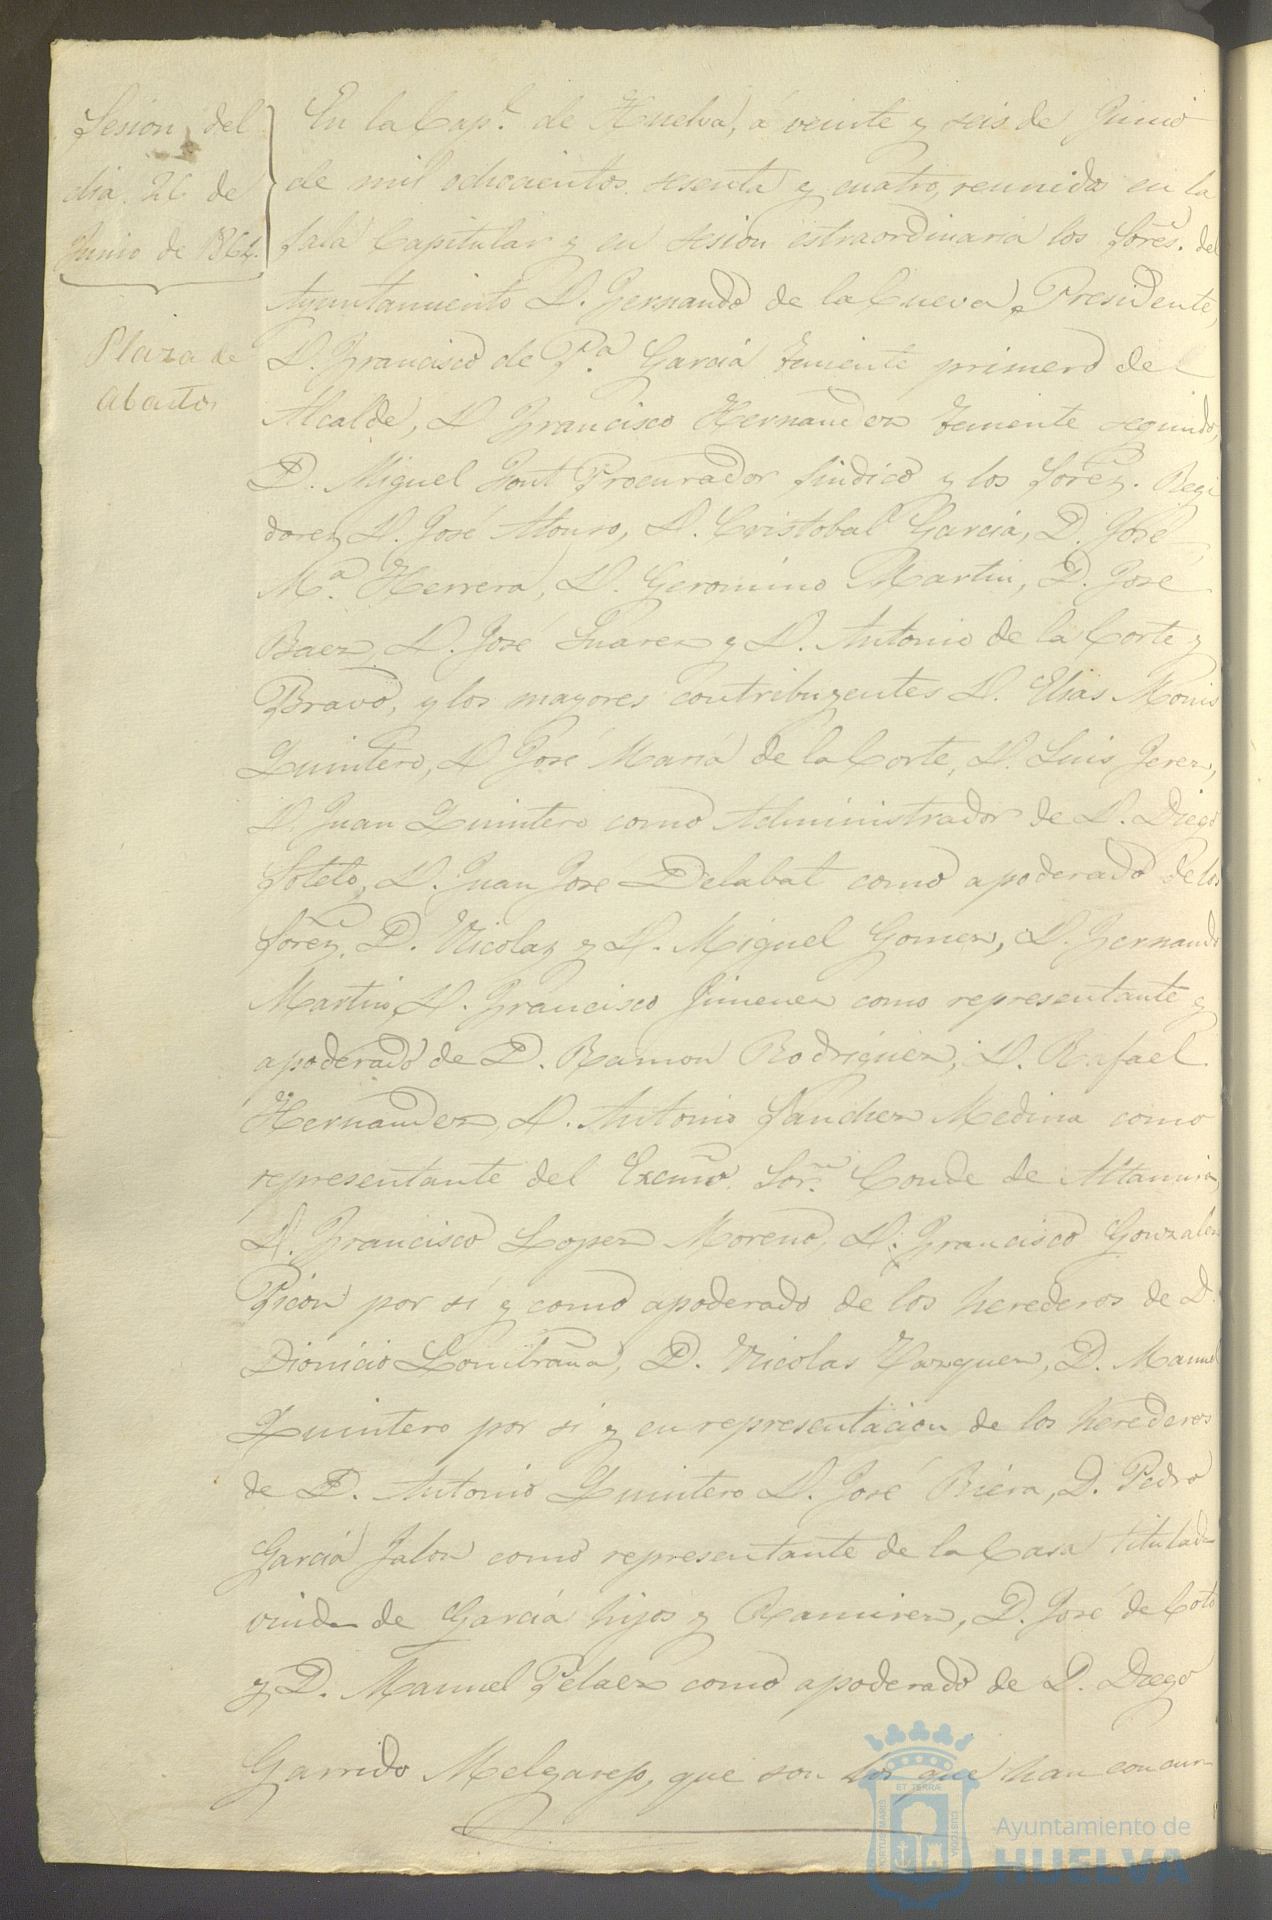 Sesion del
dia 26 de
Junio de 1864.
Plaza de
Abastos
En la Cap.l de Huelva, á veinte y seis de Junio
de mil ochocientos sesenta y cuatro, reunidos en la
Sala Capitular y en sesion estraordinaria los Sores. del
Ayuntamiento D. Fernando de la Cueva, Presidente,
D. Francisco de P.a García teniente primero de
Alcalde, D. Francisco Hernandez teniente segundo,
D. Miguel Font Procurador Sindico y los Sorez. Regi
dorez D. José Alonso, D. Cristobal García, D. José
M.a Herrera, D. Geronimo Martin, D. José
Baez, D. José Suarez y D. Antonio de la Corte y
Bravo, y los mayores contribuyentes D. Elias Monis
Quintero, D. José María de la Corte, D. Luis Jerez,
D. Juan Quintero como Administrador de D. Diego
Sotelo, D. Juan José Delabat como apoderado de los
Sorez. D. Nicolaz y D. Miguel Gomez, D. Fernando
Martin, D. Francisco Jimenez como representante y
apoderado de D. Ramon Rodriguez, D. Rafael
Hernandez, D. Antonio Sanchez Medina como
representante del Excmo. Sor. Conde de Altamira,
D. Francisco Lopez Moreno, D. Francisco Gonzalez
Picon por sí y como apoderado de los herederos de D.
Dionicio Lombraña, D. Nicolas Vazquez, D. Manuel
Quintero por sí y en representacion de los herederos
de D. Antonio Quintero D. José Riera, D. Pedro
García Jalon como representante de la Casa titulada
viuda de García hijos y Ramirez, D. José de Coto
y D. Manuel Pelaez como apoderado de D. Diego
Garrido Melgarejo, que son los que han concur
ET TERRÆ
Ayuntamiento de
HUELVA